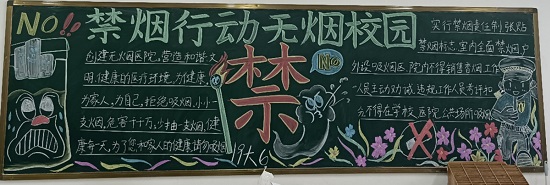 NO!!
禁烟行动无烟校园
创建无烟医院,营造和谐文
明,健康的医疗环境,为健康,
为家人,为自己,拒绝吸烟,小小
支烟,危害千千万,少抽一支烟,健
康每一天,为了您和家人的健康请勿吸烟
禁
No
19大6
实行禁烟责任制张贴
禁烟标志,室内全面禁烟,户
外设吸烟区,院内不得销售烟
工作人员主动劝戒,违规
不得在学校,医院,公共场所吸烟